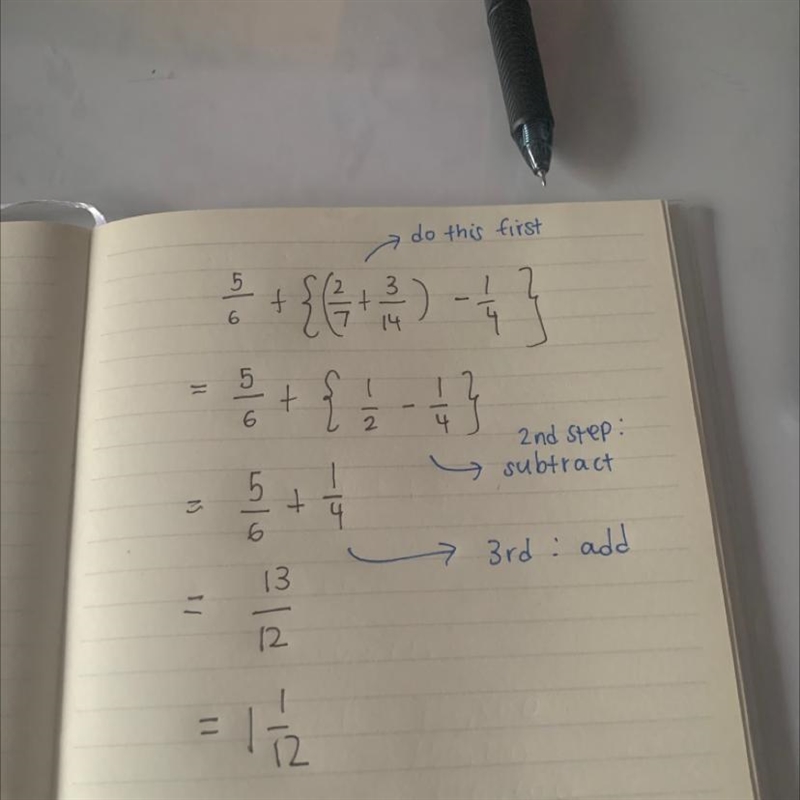 do this first
5/6 + {(2/7 + 3/14) - 1/4}
= 5/6 + {1/2 - 1/4}
2nd step:
subtract
= 5/6 + 1/4
3rd : add
= 13/12
= 1 1/12